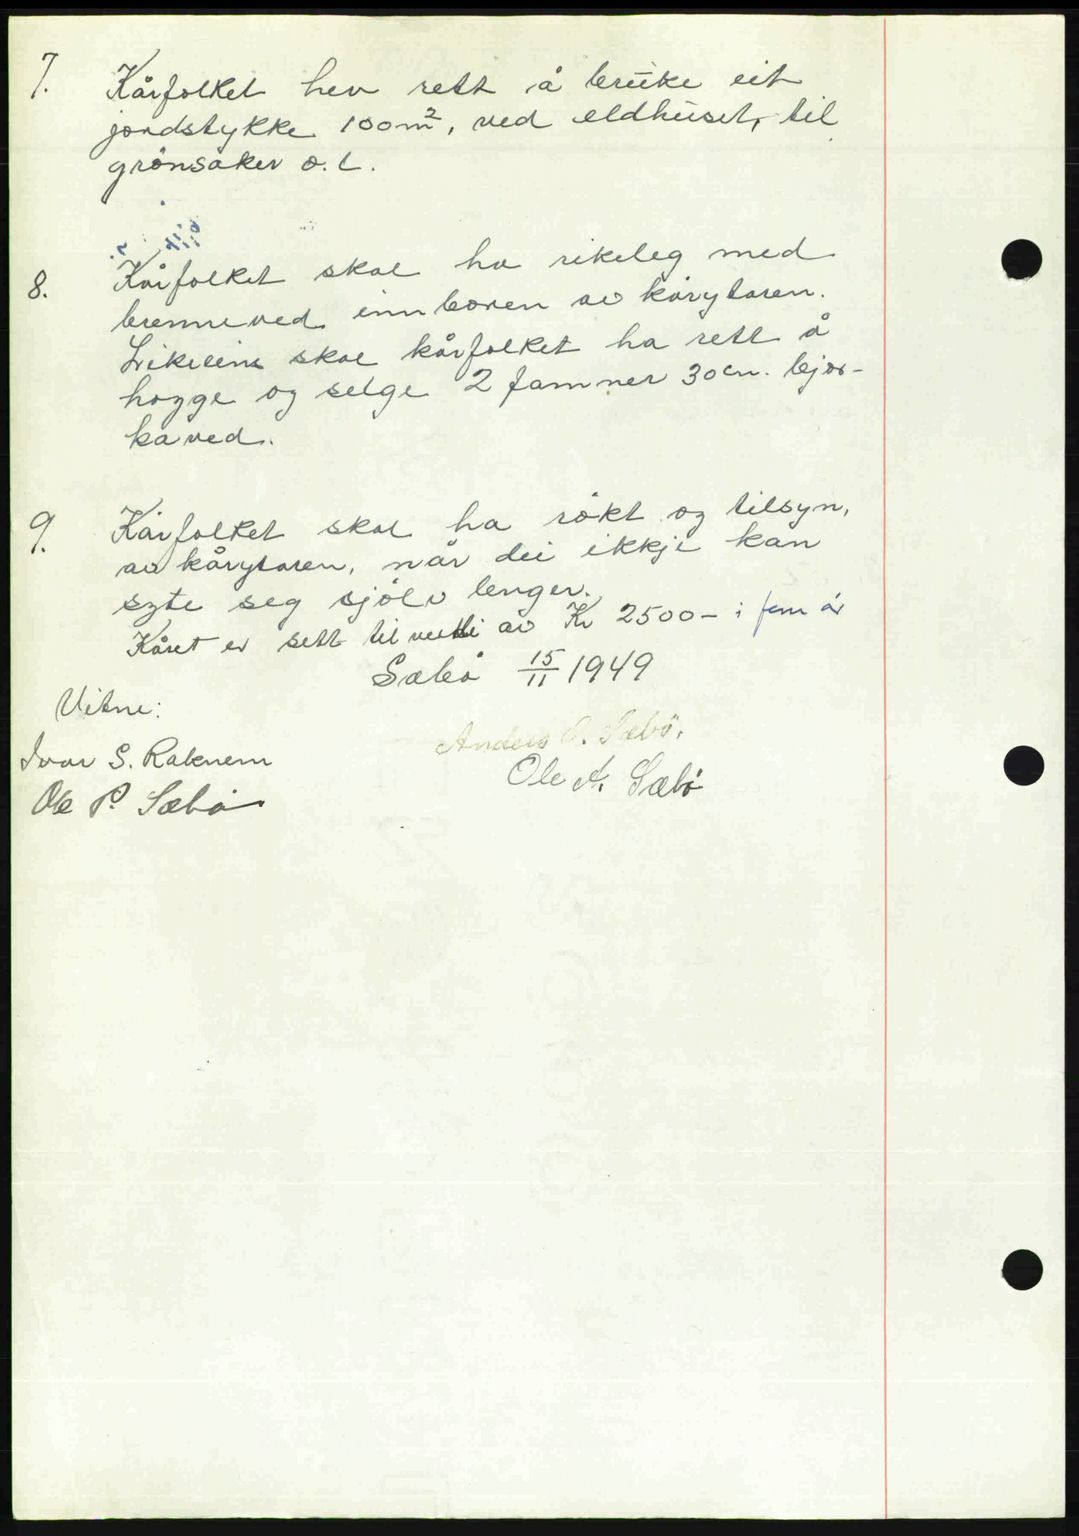 7. Kårfolket hev rett å bruke eit
jordstykke 100m², ved eldhuset, til
grönsaker o.l.
8. Kårfolket skal ha rikeleg med
brenneved innboren av kårytaren.
Likeleins skal kårfolket ha rett å
hogge og selge 2 famner 30cm. bjør-
kaved.
9. Kårfolket skal ha rökt og tilsyn,
av kårytaren, når dei ikkje kan
syte seg sjölv lenger.
Kåret er sett til verdi av Kr 2500- i fem år
Sæbö 15/11 1949
Vitne:
Anders O. Sæbö.
Ivar S. Raknem
Ole A. Sæbö
Ole P. Sæbö